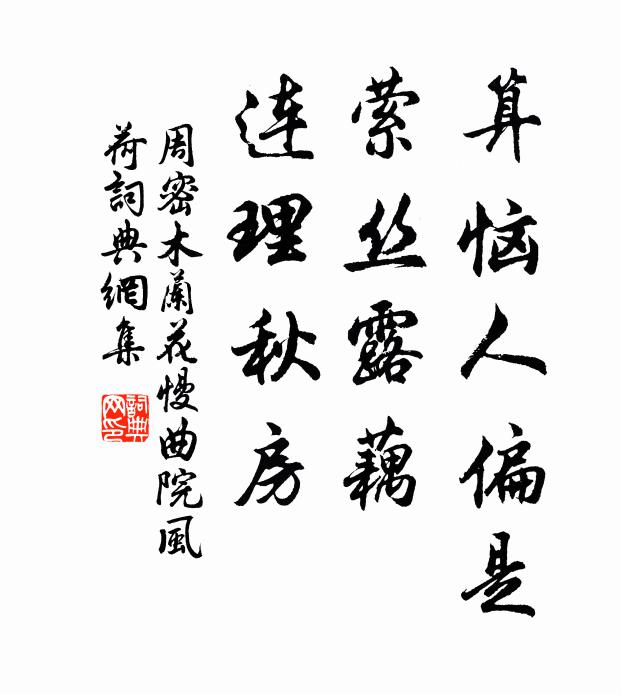 算恼人偏是
萦丝露藕
连理秋房
周密木蘭花慢曲院風
荷詞典網集
詞典
网印